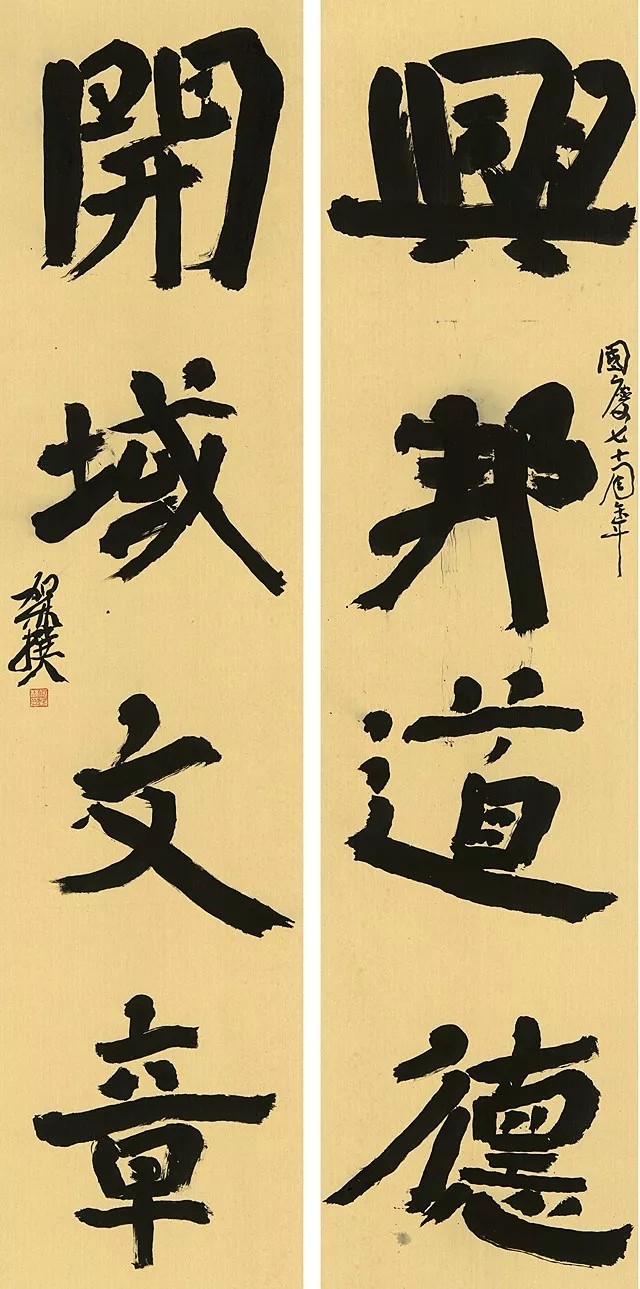 興邦道德
國慶七十周年
開域文章
撰